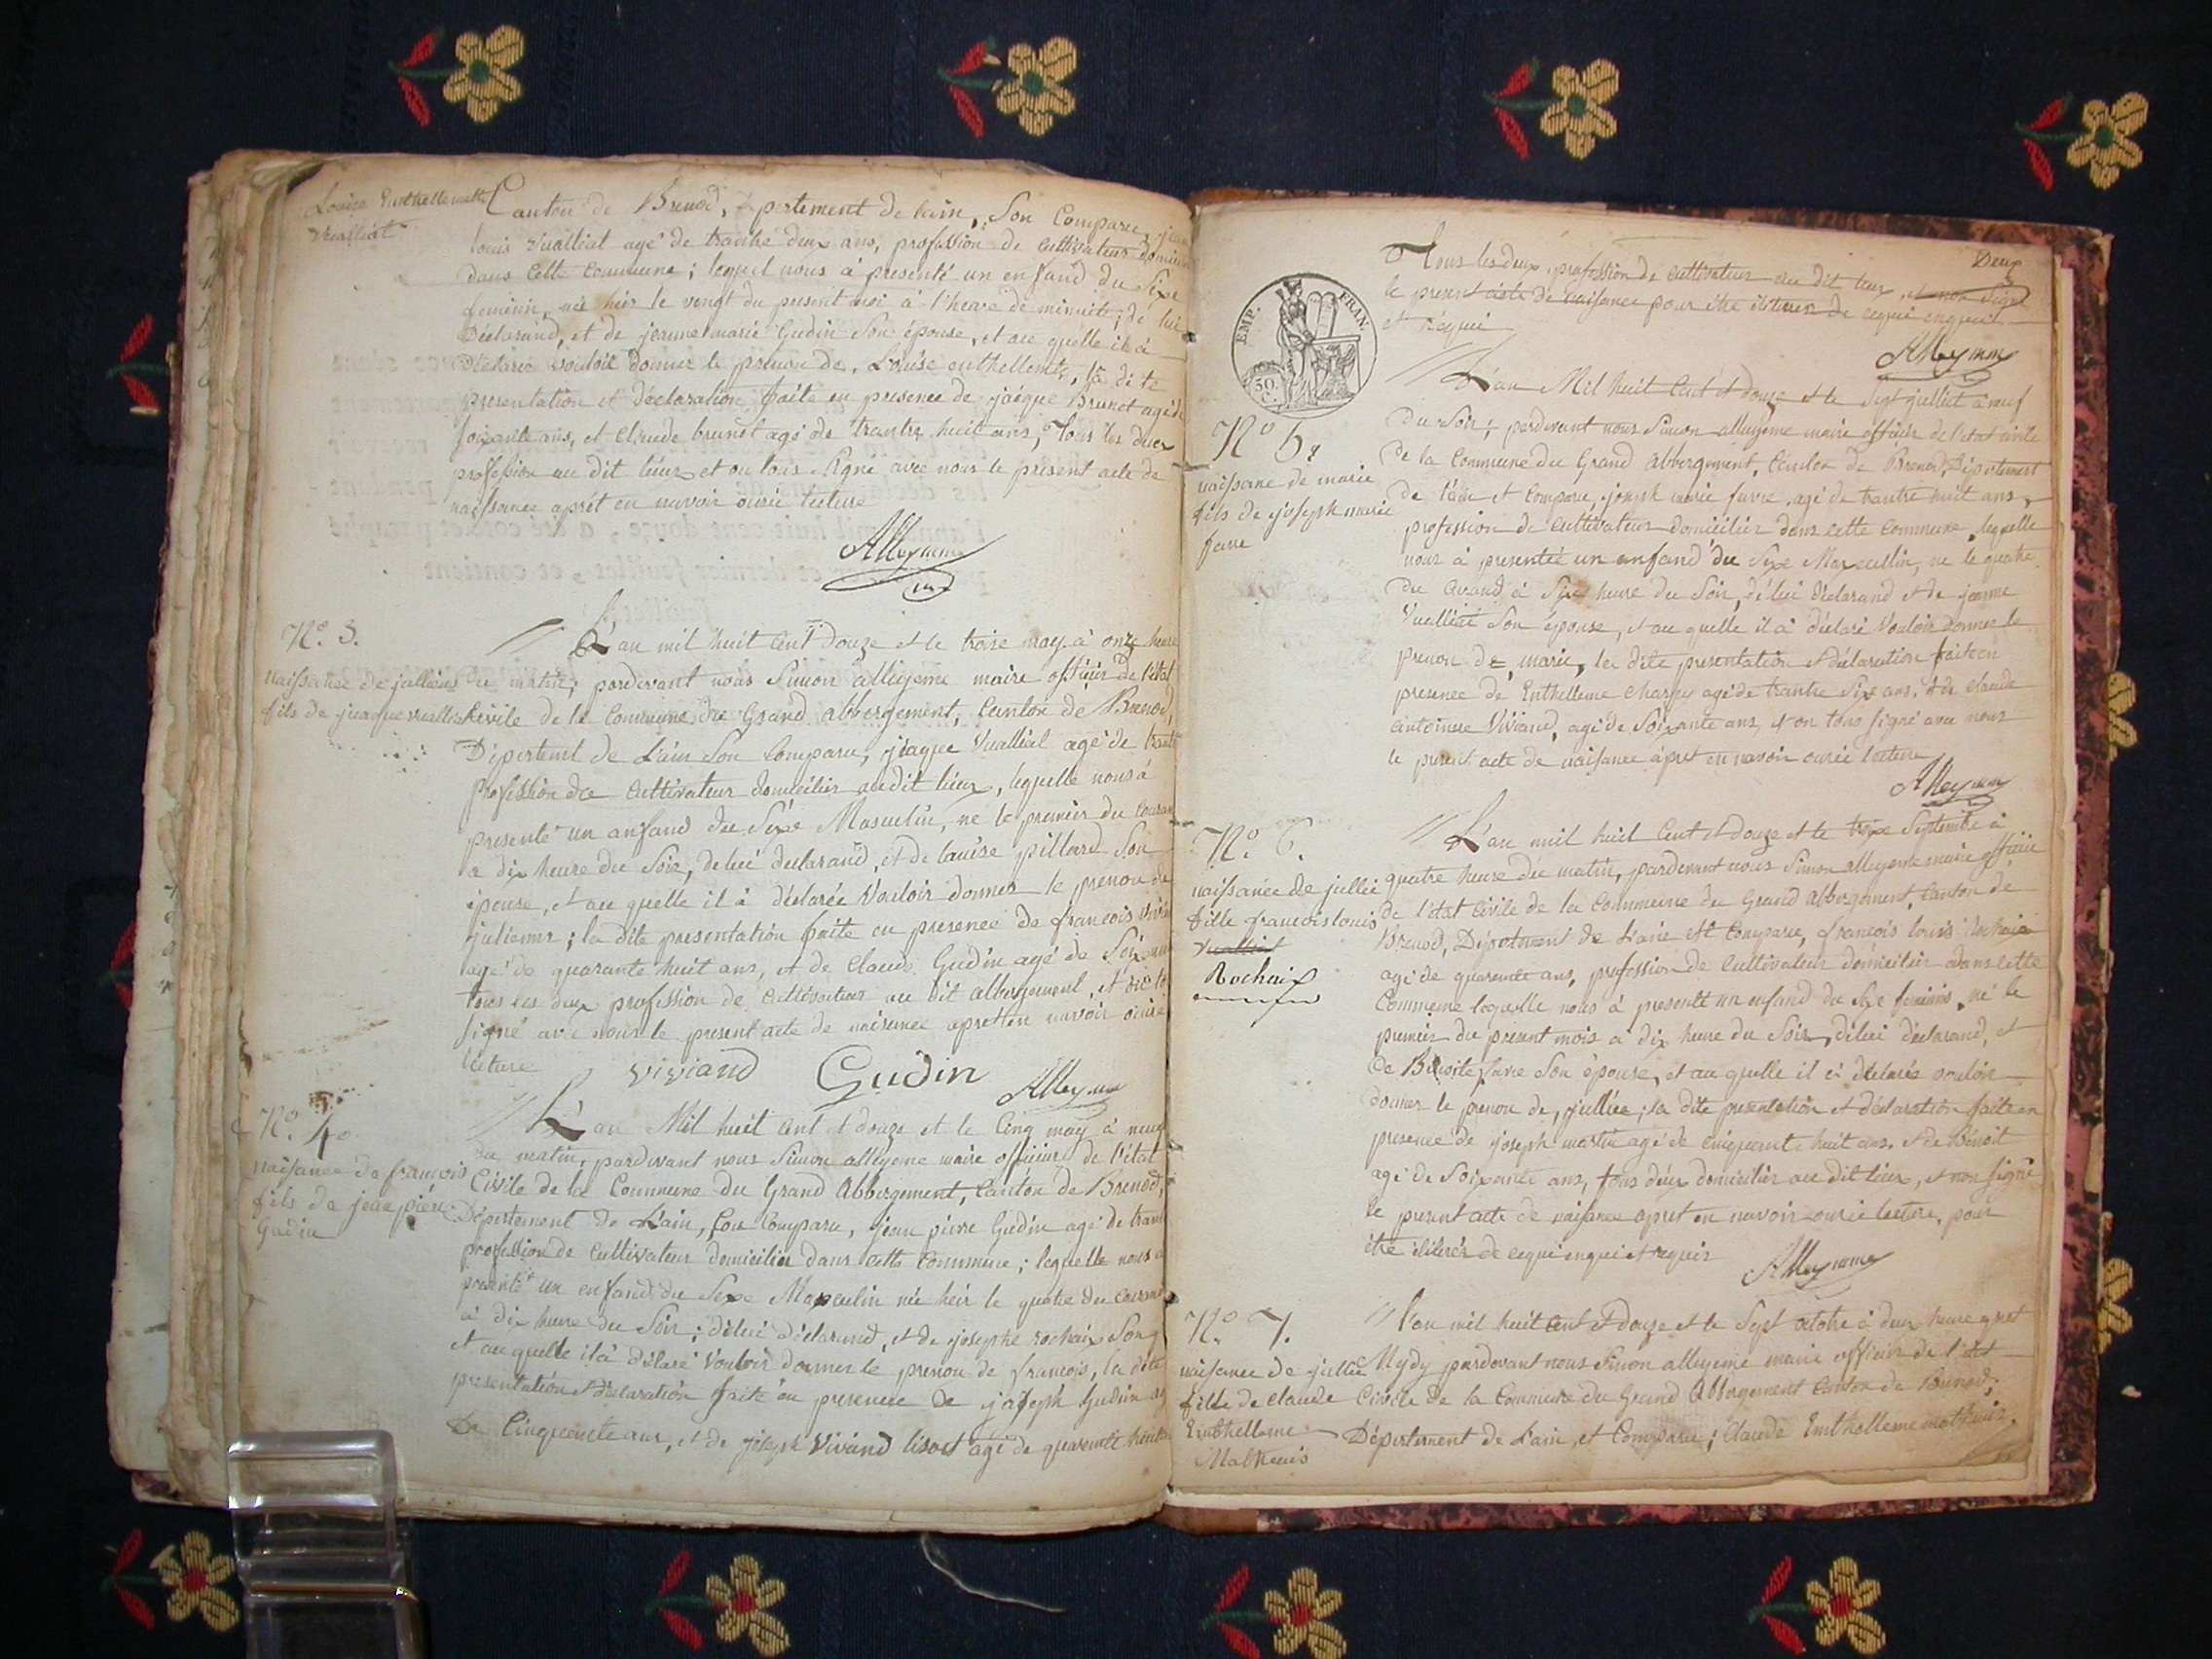 Louise Enthellemette
Vualliat
Canton de Brenod, Département de lain, Son Comparu, jean
louis Vualliat agé de trantre deux ans, profession de cultivateur domicilié
dans Cette Commune; lequel nous à presenté un enfand du Sixe
feminin, née hier le vengt du present moi à l'heure de minuite; de lui
Déclarand, et de jeanne marie Gudin Son épouse, et au quelle il à
déclaré Vouloir donner le prenon de, Louise enthellemette, la dite
presentation et déclaration faite en presence de jaéque Brunet agé de
soixante ans, et Claude brunet agé de trantre huit ans, Tous les deux
profession au dit lieux et on tous Signé avec nous le présent acte de
naissance aprét en navoir ouvie lecture
Alleymme
N° 3.
naissance de jullien
fils de jeaque vuallia
L'an mil huit Cent douze et le troise may à onze heure
du matin; pardevant nous Simon alleyeme maire officier de l'état
Civile de la Commune du Grand abbergement, Canton de Brenod,
Département de L'ain Son Comparu, jeaque Vualliat agé de trante
profession de Cultivateur domicilier audit lieux, lequelle nous à
presenté un anfand du Sixe Masculin, ne le premier du Couran
a dix heure du Soir, delui déclarand, et de lauise pillard Son
épouse, et au quelle il à déclarée Vouloir donner le prenon de
julienne; la dite presentation faite en presence de francois vivia
agé de quarante huit ans, et de Claude Gudin agé de Soix
tous les deux profession de Cultivateur au dit albergement, et
signé avec nous le present acte de naisance aprét en navoir ouvie
lecture
viviand Gudin Alleymme
N° 4.
naissance de francois
fils de jean pière
Gudin
L'an Mil huit Cent et douze et le Cinq may à neuf
du matin, pardevant nous Simon alleyeme maire officier de l'état
Civile de la Commune du Grand Abbergement, Canton de Brenod,
Département de L'ain, Son Comparu, jean pière Gudin agé de trant
profession de Cultivateur domicilier dans cette Commune; lequelle nous a
presenté un enfand du Sexe Masculin née heir le quatre du courant
à dix heure du Soir; délui déclarand, et de josephe rochaix Son
et au quelle il à déclaré Vouloir donner le prenon de francois, la dite
presentation et déclaration faite en presence de joseph Gudin
de Cinquante ans, et de joseph Viviand lisoet agé de quarante huit
Deux
Tous les deux profession de cultivateur au dit lieux, et non Signé
le present acte de naisance pour être iliterer de cequi enquis
et réquis
Alleymme
EMP. FRAN.
50. C.
N° 5.
naissane de marie
fils de joseph marie
favre
L'an Mil huit Cent et douze et le Sept julliet à neuf
du Soir; pardevant nous Simon alleyeme maire officier de l'état civile
de la Commune du Grand abbergement, Canton de Brenod, Département
de l'ain et Comparu, joseph marie favre agé de trantre huit ans,
profession de cultivateur domicilier dans cette commune, lequelle
nous à presenté un anfand du Sexe Marcullin, ne le quatre
du Courand à Sixe heure du Soir, délui déclarand et de jeanne
Vualliat Son épouse, et au quelle il à déclaré Vouloir donner le
prenon de, marie, la dite presentation et déclaration faite en
presence de Enthelleme Charpy agé de trantre Six ans, et de Claude
antoinne Viviand, agé de Soixante ans, et on tous signé avec nous
le present acte de naisance aprét en navoir ouvie lecture
Alleymme
N° 6.
naissance de jullie
fille francois louis
Vualliat
Rochaix
L'an mil huit Cent et douze et le troise Septembre à
quatre heure du matin, pardevant nous Simon alleyeme maire officier
de l'état Civile de la Commune du Grand Abbergement, Canton de
Brenod, Département de L'ain et Comparu, francois louis Rochaix
agé de quarante ans, profession de Cultivateur domicilier dans cette
Commune lequelle nous à presenté un enfand du Sexe feminin, né le
premier du present mois à dix heure du Soir, délui déclarand, et
de Benoite favre Son épouse, et au quelle il à déclarée vouloir
donner le prenon de, julliée; la dite presentation et déclaration faite en
presence de joseph martin agé de cinquante huit ans, et de Bénoit
agé de Soixante ans, tous deux domicilier au dit lieux, et non signé
le present acte de naisance aprét en navoir ouvie lecture, pour
être iliterés de cequi enquis et requis
Alleymme
N° 7.
naisance de jullie
fille de claude
Enthelleme
Mathieus
l'an mil huit Cent et douze et le Sept octobre à deux heure apret
Mydy pardevant nous Simon alleyeme maire officier de l'état
Civile de la Commune du Grand Abbergement Canton de Brenod,
Département de L'ain, et Comparu; Claude Enthelleme mathieus,